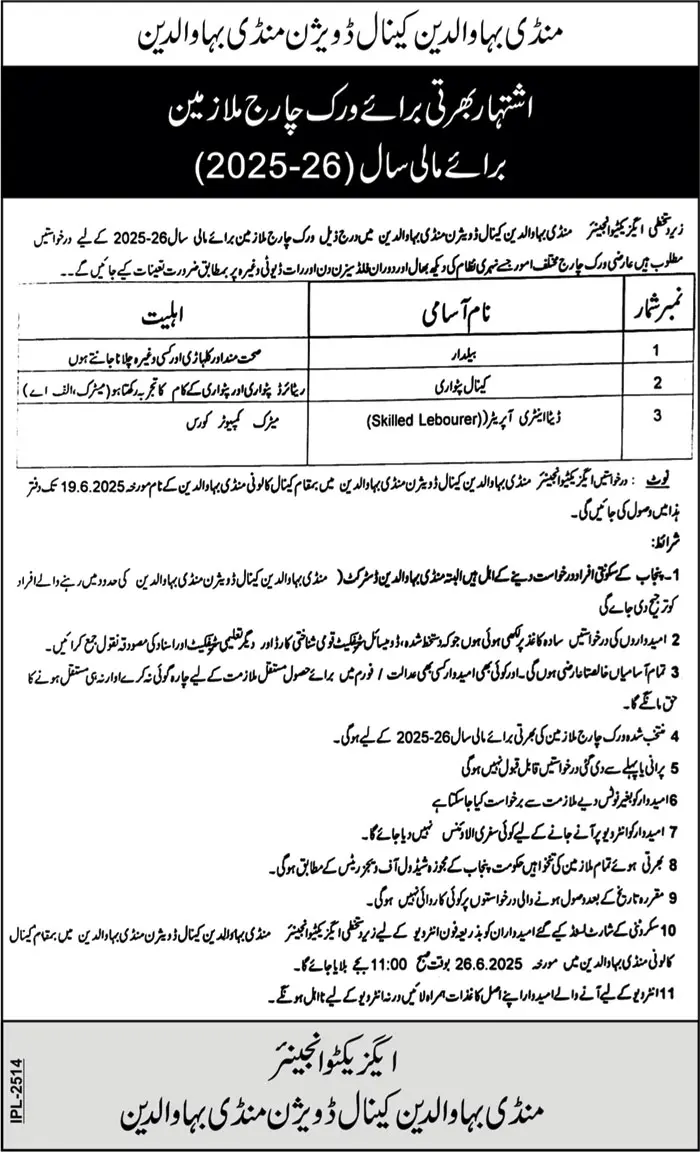 منڈی بہاوالدین کینال ڈویژن منڈی بہاوالدین
اشتہار بھرتی برائے ورک چارج ملازمین
برائے مالی سال (2025-26)
زیر دستخطی ایگزیکٹو انجینئر منڈی بہاوالدین کینال ڈویژن منڈی بہاوالدین میں درج ذیل ورک چارج ملازمین برائے مالی سال 2025-26 کے لیے درخواستیں
مطلوب ہیں عارضی ورک چارج مختلف امور جسے نہری نظام کی دیکھ بھال اور دوران فلڈ سیزن دن اور رات ڈیوٹی وغیرہ پر بمطابق ضرورت تعینات کیے جائیں گے۔۔
نمبر شمار نام آسامی اہلیت
1 بیلدار صحت مند اور کلہاڑی اور کسی وغیرہ چلانا جانتے ہوں
2 کینال پٹواری ریٹائرڈ پٹواری اور پٹواری کے کام کا تجربہ رکھتا ہو (میٹرک، الف اے)
3 ڈیٹا اینٹری آپریٹر ((Skilled Lebourer) میٹرک کمپیوٹر کورس
نوٹ : درخواستیں ایگزیکٹو انجینئر منڈی بہاوالدین کینال ڈویژن منڈی بہاوالدین میں بمقام کینال کالونی منڈی بہاوالدین کے نام مورخہ 19.6.2025 تک دفتر
ہذا میں وصول کی جائیں گی۔
شرائط:
1۔ پنجاب کے سکونتی افراد درخواست دینے کے اہل ہیں البتہ منڈی بہاوالدین ڈسٹرکٹ ( منڈی بہاوالدین کینال ڈویژن منڈی بہاوالدین کی حدود میں رہنے والے افراد
کو ترجیح دی جاے گی
2 امیدواروں کی درخواستیں سادہ کاغذ پر لکھی ہوئی ہوں جو کہ دستخط شدہ، ڈومیسائل سرٹیفکیٹ قومی شناختی کارڈ اور دیگر تعلیمی سرٹیفکیٹ اور اسناد کی مصدقہ نقول جمع کرائیں۔
3 تمام آسامیاں خالصتا عارضی ہوں گی۔ اور کوئی بھی امیدوار کسی بھی عدالت / فورم میں برائے حصول مستقل ملازمت کے لیے چارہ گوئی نہ کرے اوار نہ ہی مستقل ہونے کا
حق مانگے گا۔
4 منتخب شدہ ورک چارج ملازمین کی بھرتی برائے مالی سال 2025-26 کے لیے ہوگی۔
5 پرانی یا پہلے سے دی گئی درخواستیں قابل قبول نہیں ہوگی
6 امیدوار کو بغیر نوٹس دیے ملازمت سے برخواست کیا جا سکتا ہے
7 امیدوار کو انٹرویو پر آنے جانے کے لیے کوئی سفری الاؤنس نہیں دیا جائے گا۔
8 بھرتی ہوئے تمام ملازمین کی تنخواہیں حکومت پنجاب کے مجوزہ شیڈول آف ویجز ریٹس کے مطابق ہوگی۔
9 مقررہ تاریخ کے بعد وصول ہونے والی درخواستوں پر کوئی کاروائی نہیں ہوگی۔
10 سکروٹنی کے شارٹ لسٹڈ کیے گئے امیدواران کو بذریعہ فون انٹرویو کے لیے زیر دستخطی ایگزیکٹو انجینئر منڈی بہاوالدین کینال ڈویژن منڈی بہاوالدین میں بمقام کینال
کالونی منڈی بہاوالدین میں مورخہ 26.6.2025 بوقت صبح 11:00 بجے بلایا جائے گا۔
11 انٹرویو کے لیے آنے والے امیدوار اپنے اصل کاغذات ہمراہ لائیں ورنہ انٹرویو کے لیے نااہل ہونگے۔
ایگزیکٹو انجینئر
منڈی بہاوالدین کینال ڈویژن منڈی بہاوالدین
IPL-2514